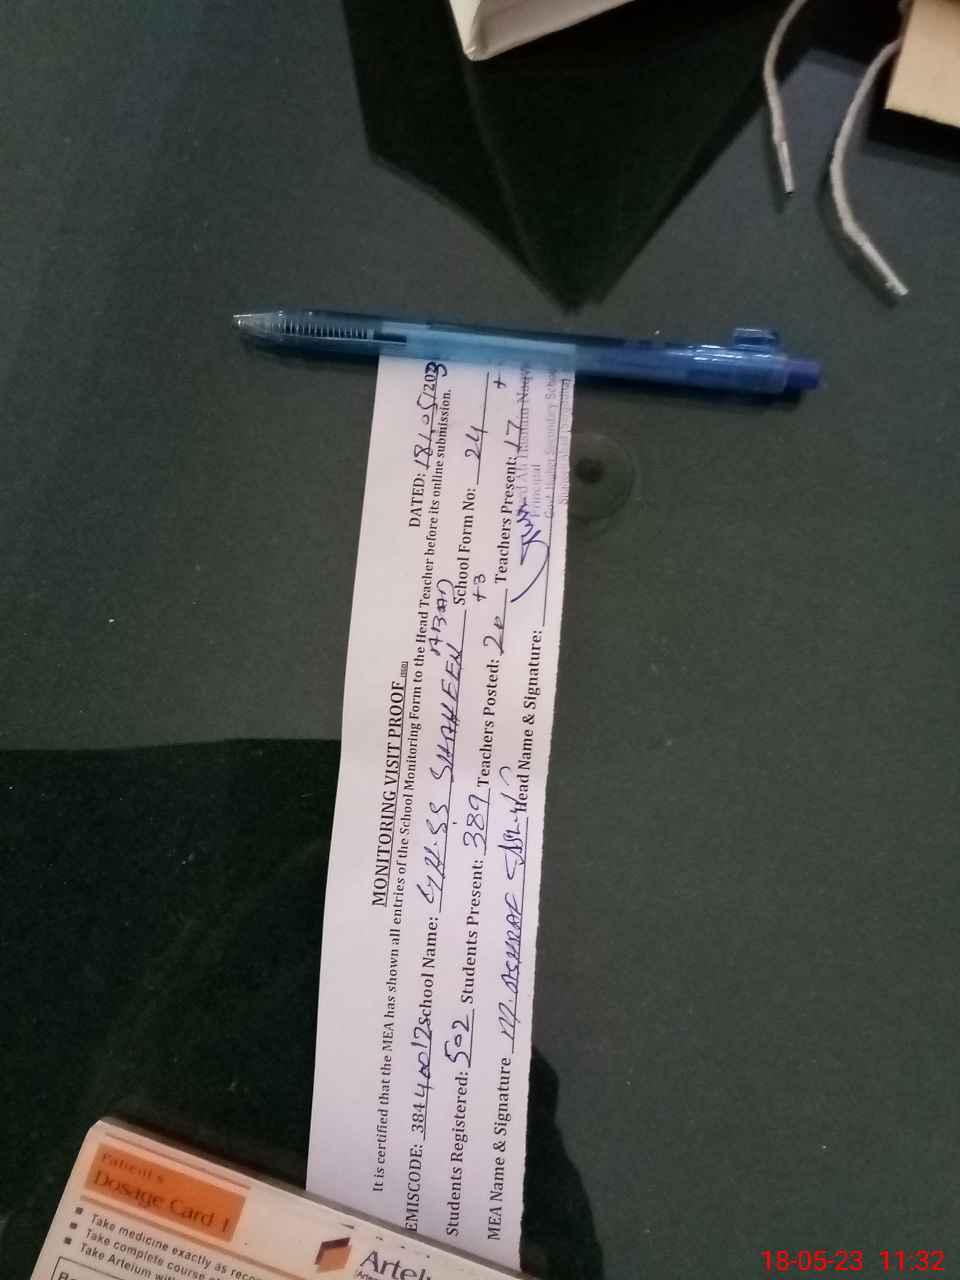 MONITORING VISIT PROOF
DATED: 18/05/2023
It is certified that the MEA has shown all entries of the School Monitoring Form to the Head Teacher before its online submission.
EMISCODE: 38440012 School Name: G.H.SS SHAHEEN ABAD School Form No: 24
Students Registered: 502 Students Present: 389 Teachers Posted: 20 +3 Teachers Present: 17 +
MEA Name & Signature M. ASHRAF Head Name & Signature:
Principal
Govt. Higher Secondary School
Patient's
Dosage Card 1
Take medicine exactly as reco
Take complete course
Take Artelum wit
18-05-23 11:32